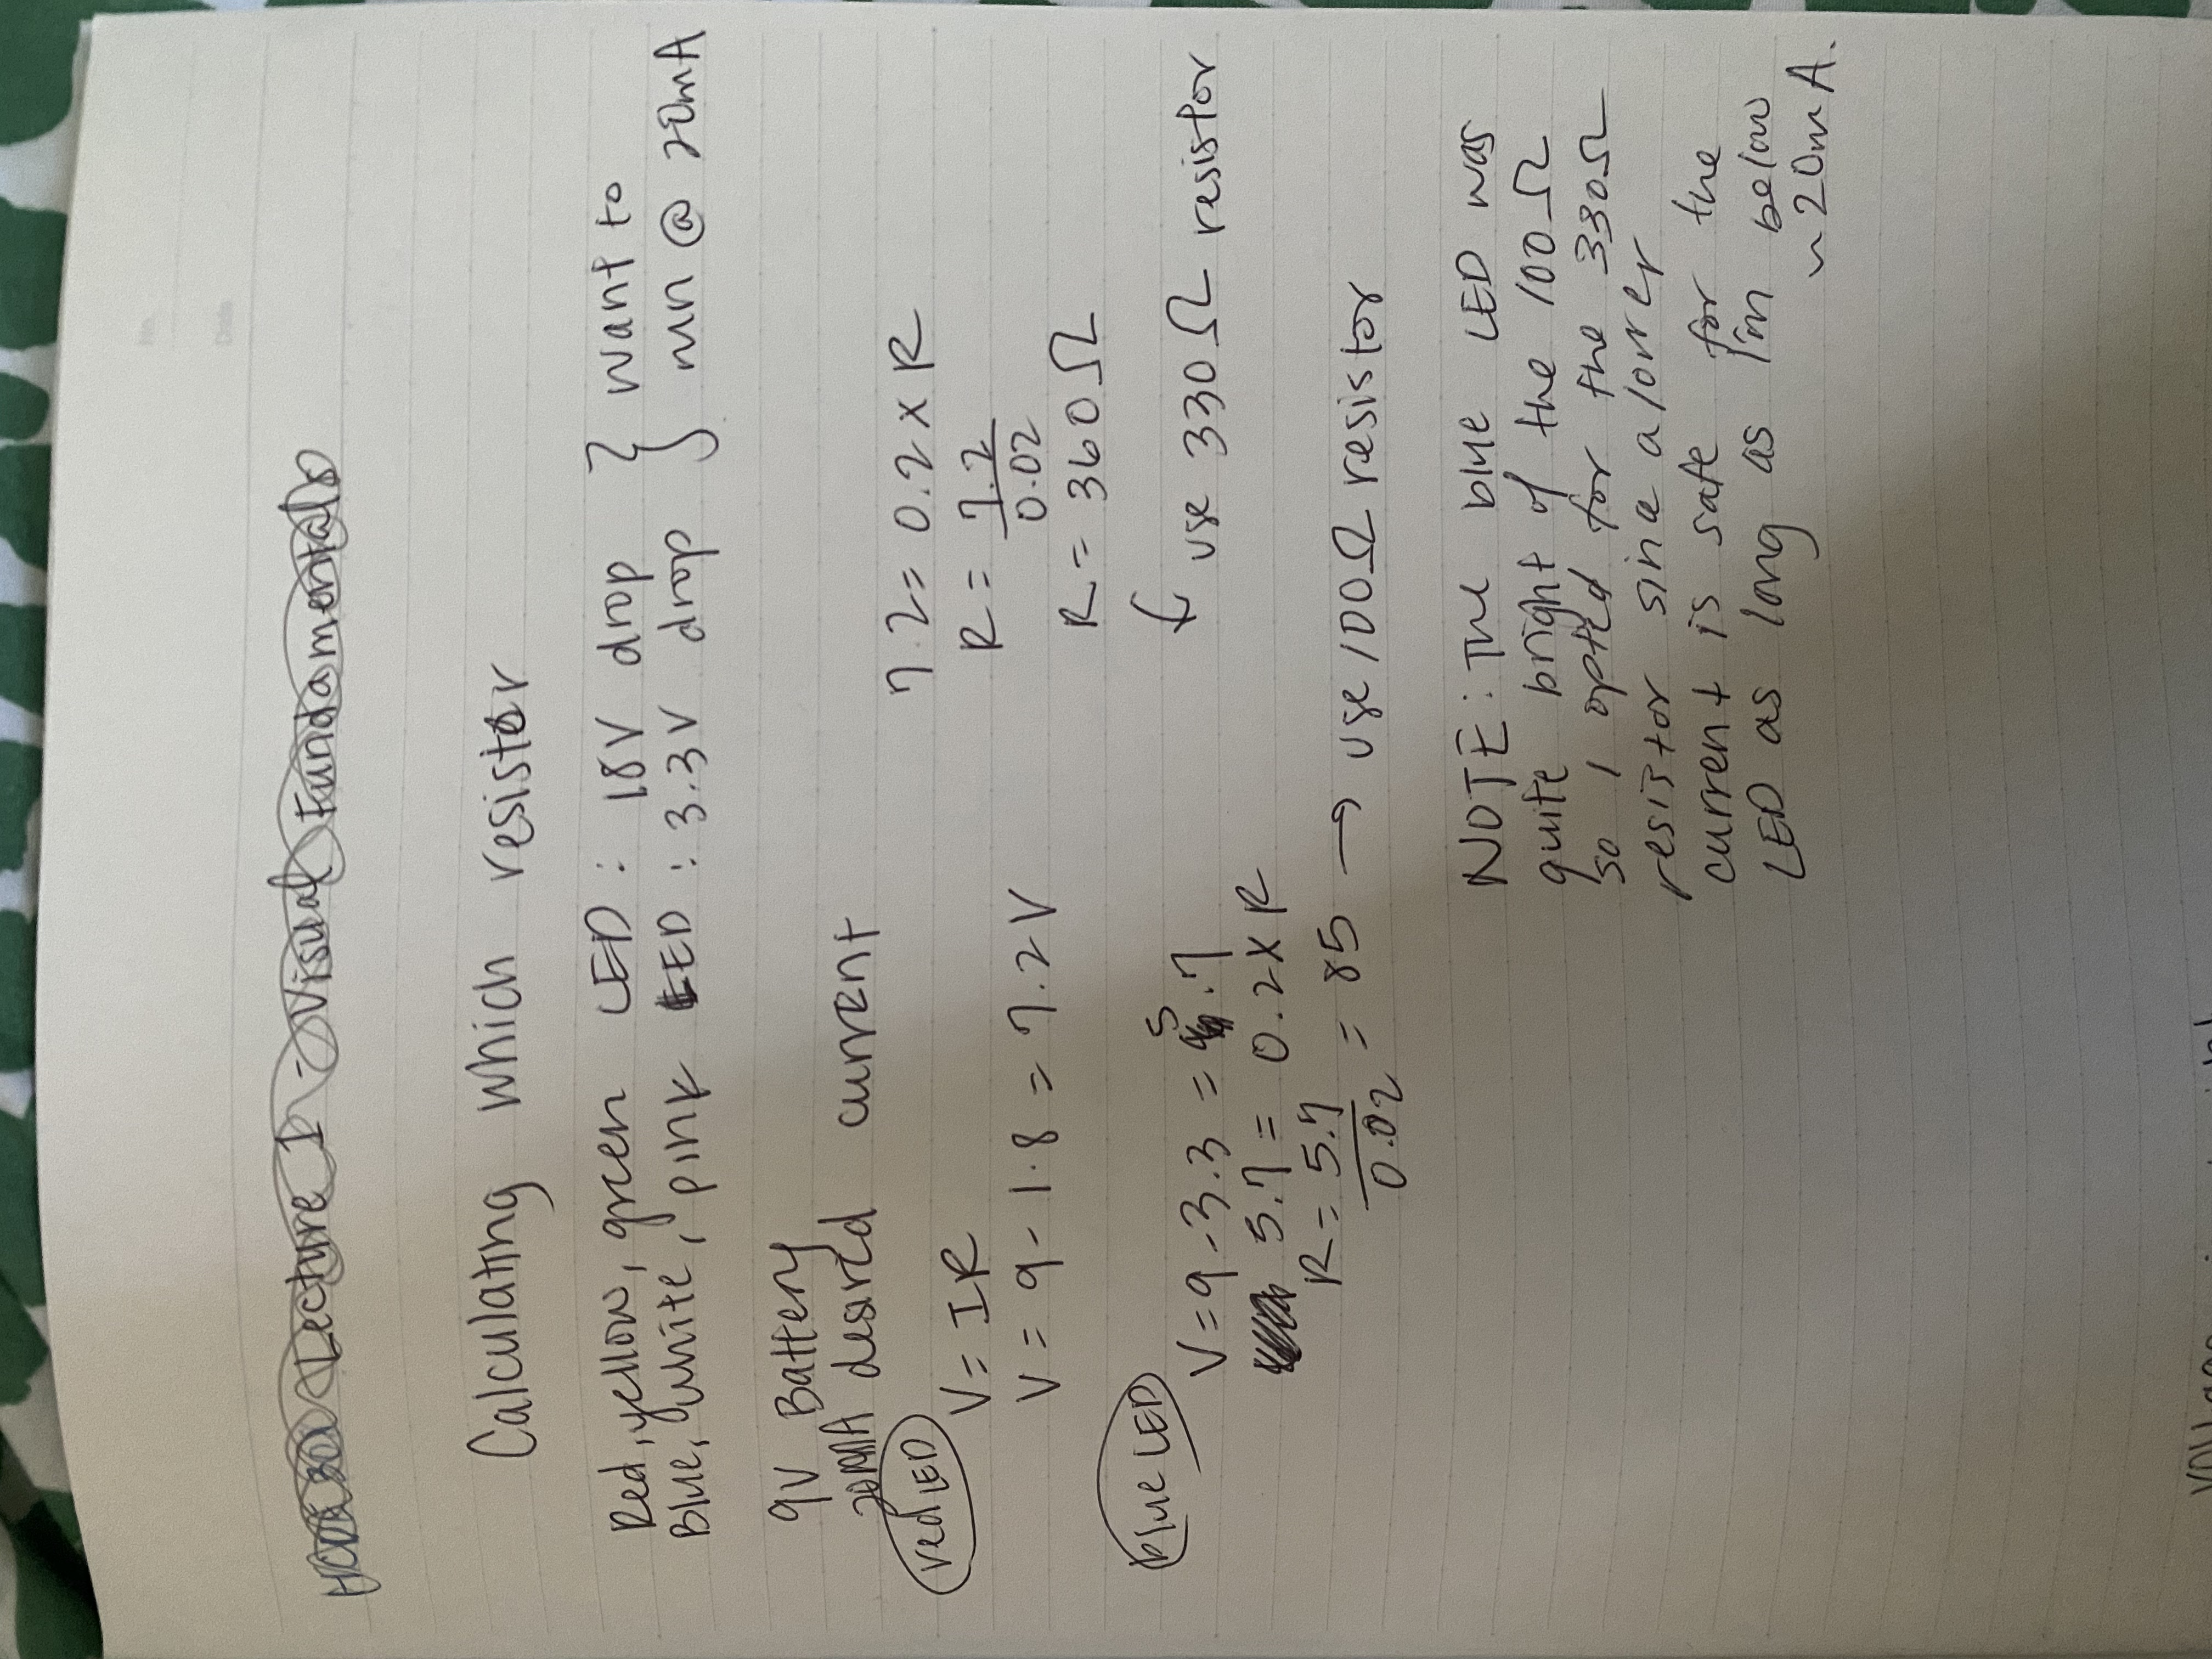 No.
Date
HCDE 301 Lecture 1 - Visual Fundamentals
Calculating which resistor
Red, yellow, green LED : 1.8V drop } want to
Blue, white, pink LED : 3.3V drop } run @ 20mA
9V Battery
20mA desired current
red LED
V= IR
V = 9 - 1.8 = 7.2V
7.2 = 0.2 x R
R = 7.2
0.02
R = 360Ω
use 330Ω resistor
blue LED
V=9-3.3 = 5.7
5.7 = 0.2 x R
R = 5.7
0.02 = 85 → use 100Ω resistor
NOTE: The blue LED was
quite bright of the 100Ω
so I opted for the 330Ω
resistor since a lower
current is safe for the
LED as long as I'm below
~20mA.